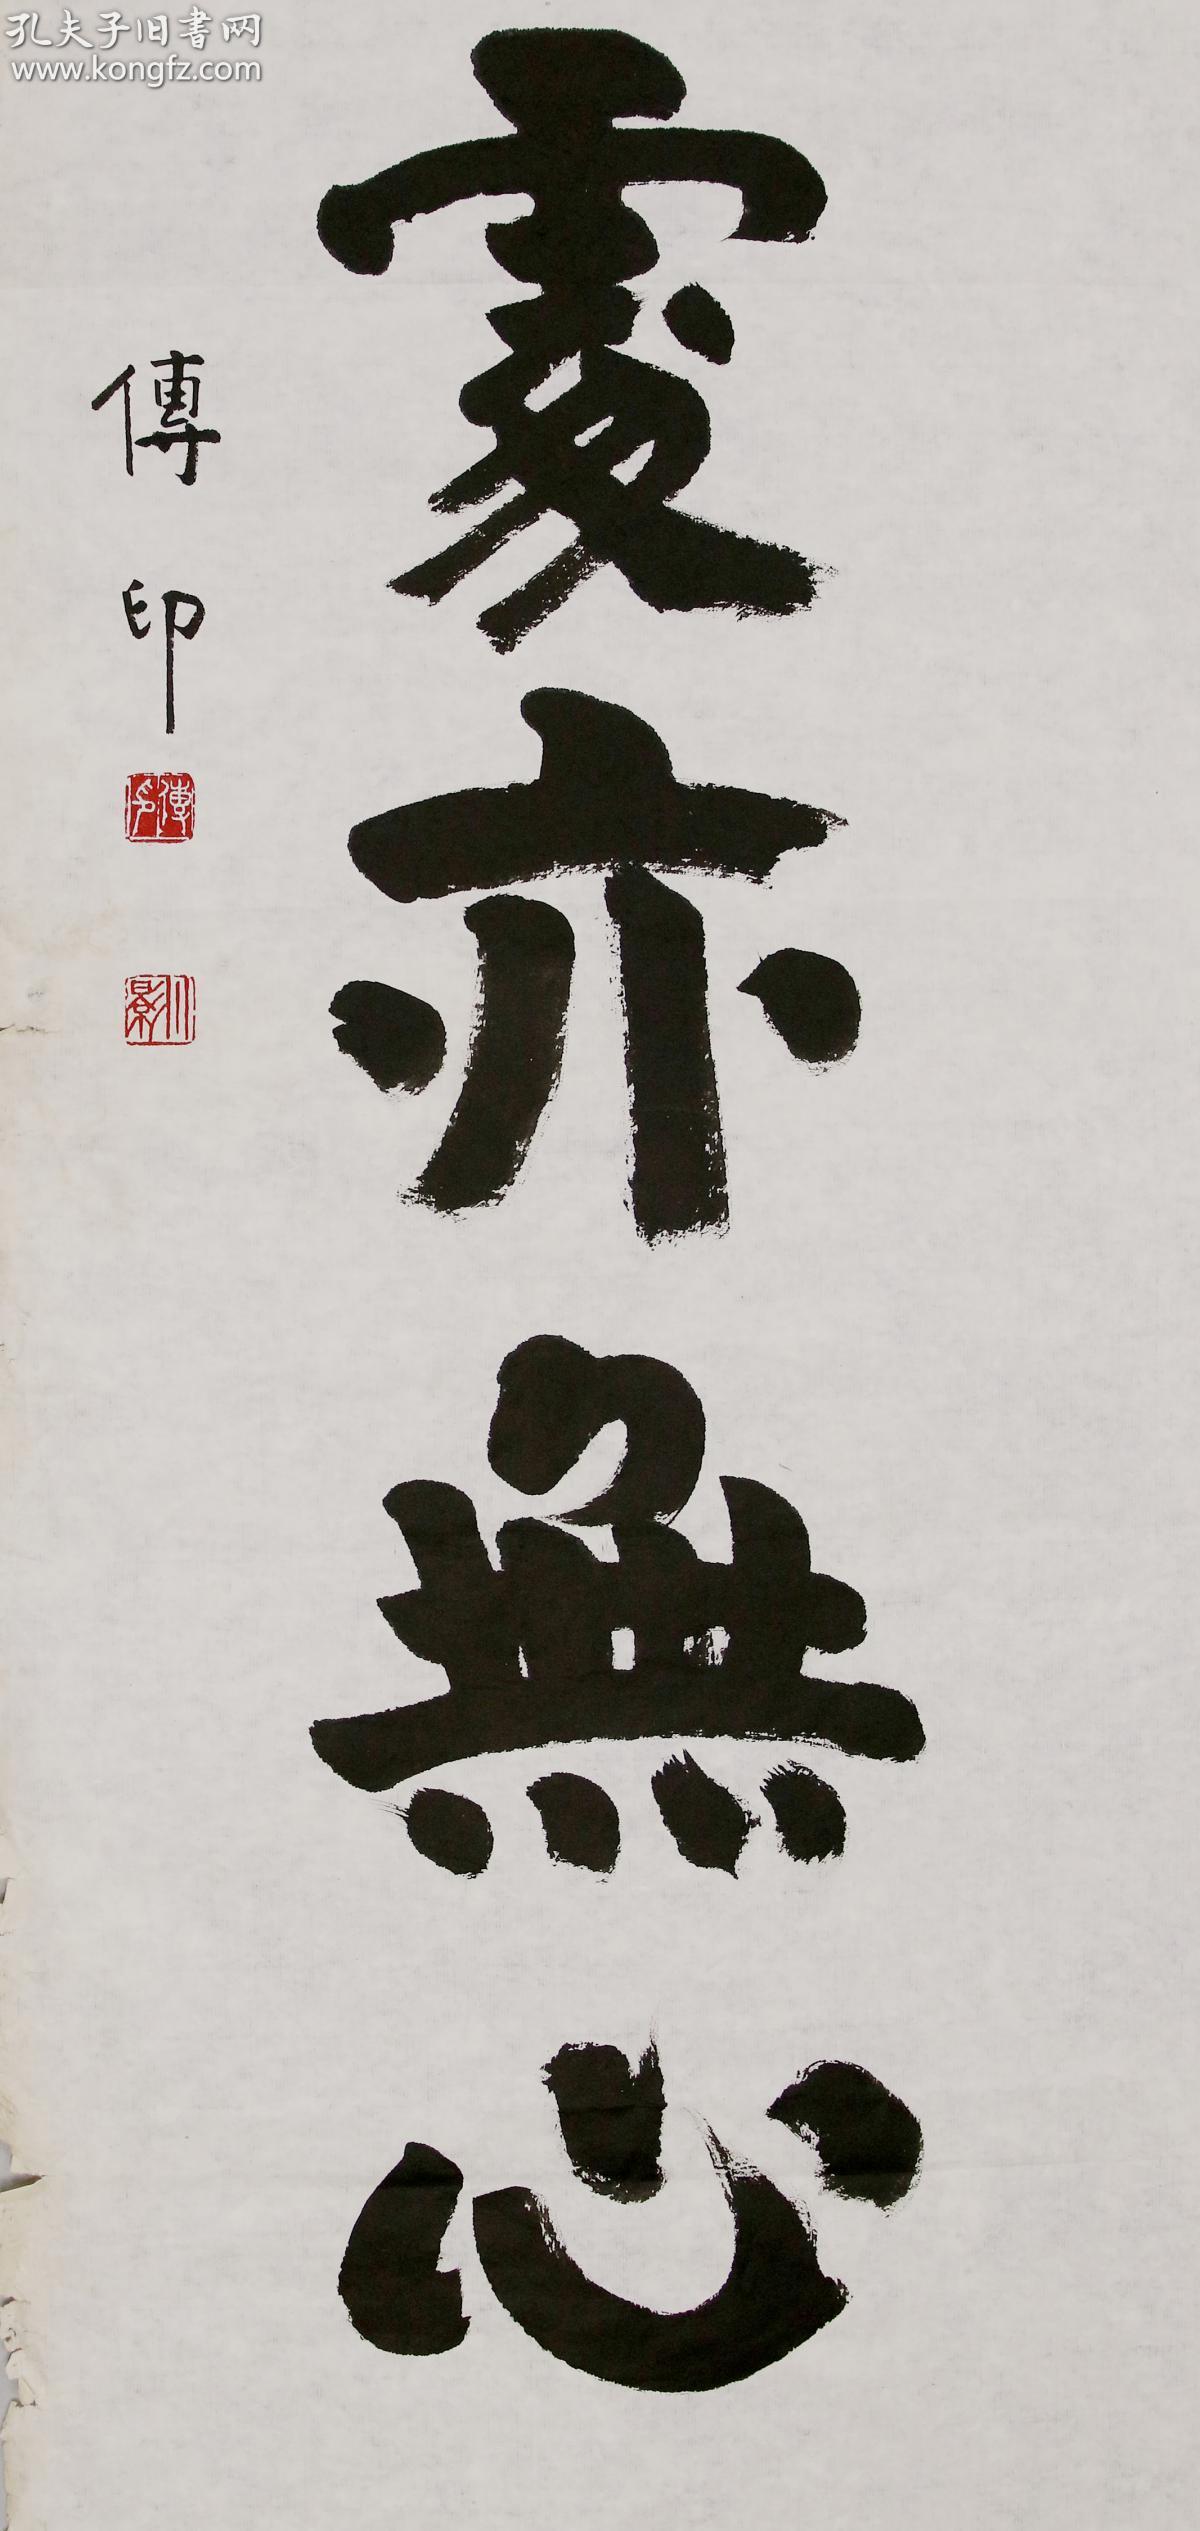 孔夫子旧書网
www.kongfz.com
亦無心
傳印
傳印